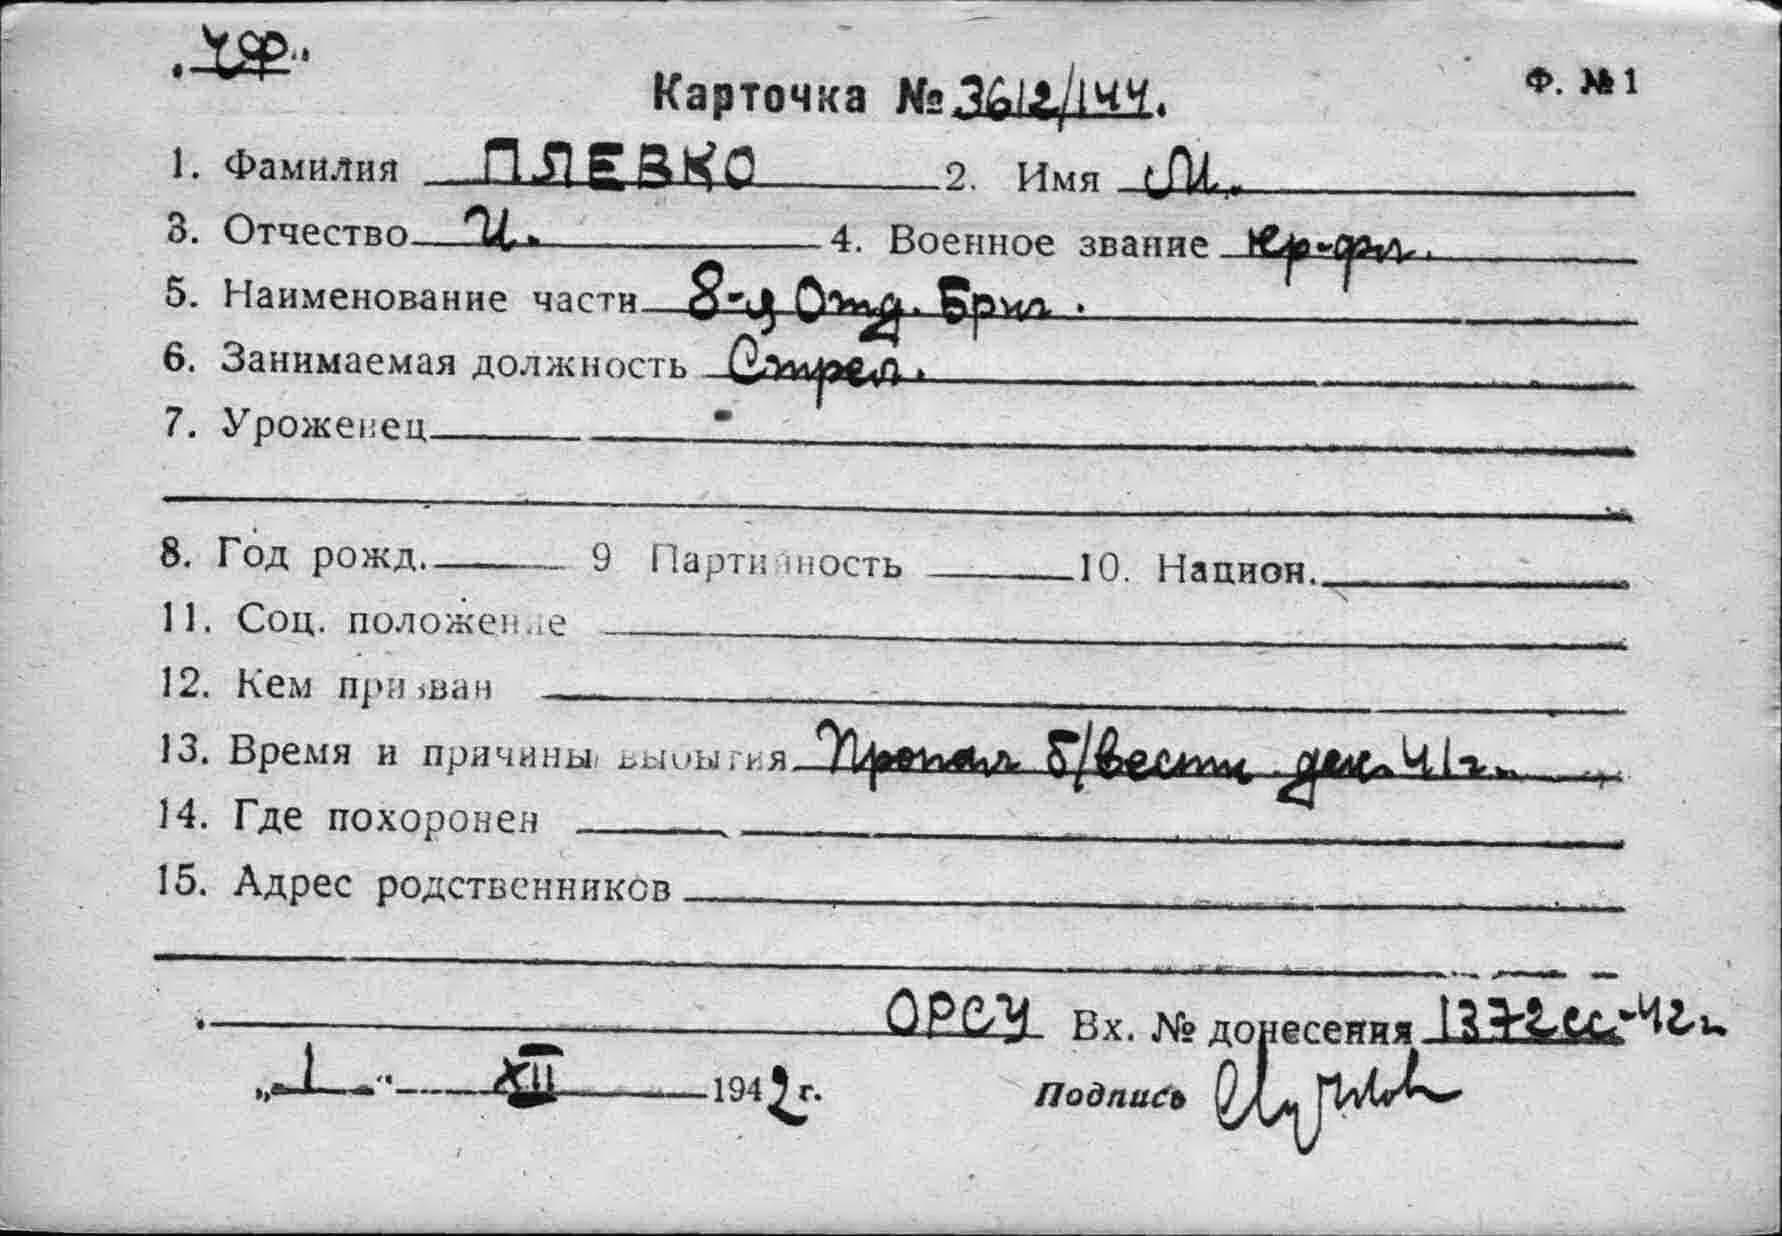 "ЧФ"
Карточка № 3612/144. Ф. № 1
1. Фамилия ПЛЕВКО 2. Имя М.
3. Отчество И. 4. Военное звание кр-фл.
5. Наименование части 8-я Отд. Бриг.
6. Занимаемая должность Стрел.
7. Уроженец
8. Год рожд. 9 Партийность 10. Национ.
11. Соц. положение
12. Кем призван
13. Время и причины выбытия Пропал б/вести дек. 41г.
14. Где похоронен
15. Адрес родственников
ОРСУ Вх. № донесения 1372сс-42г
„1" XII 1942г. Подпись